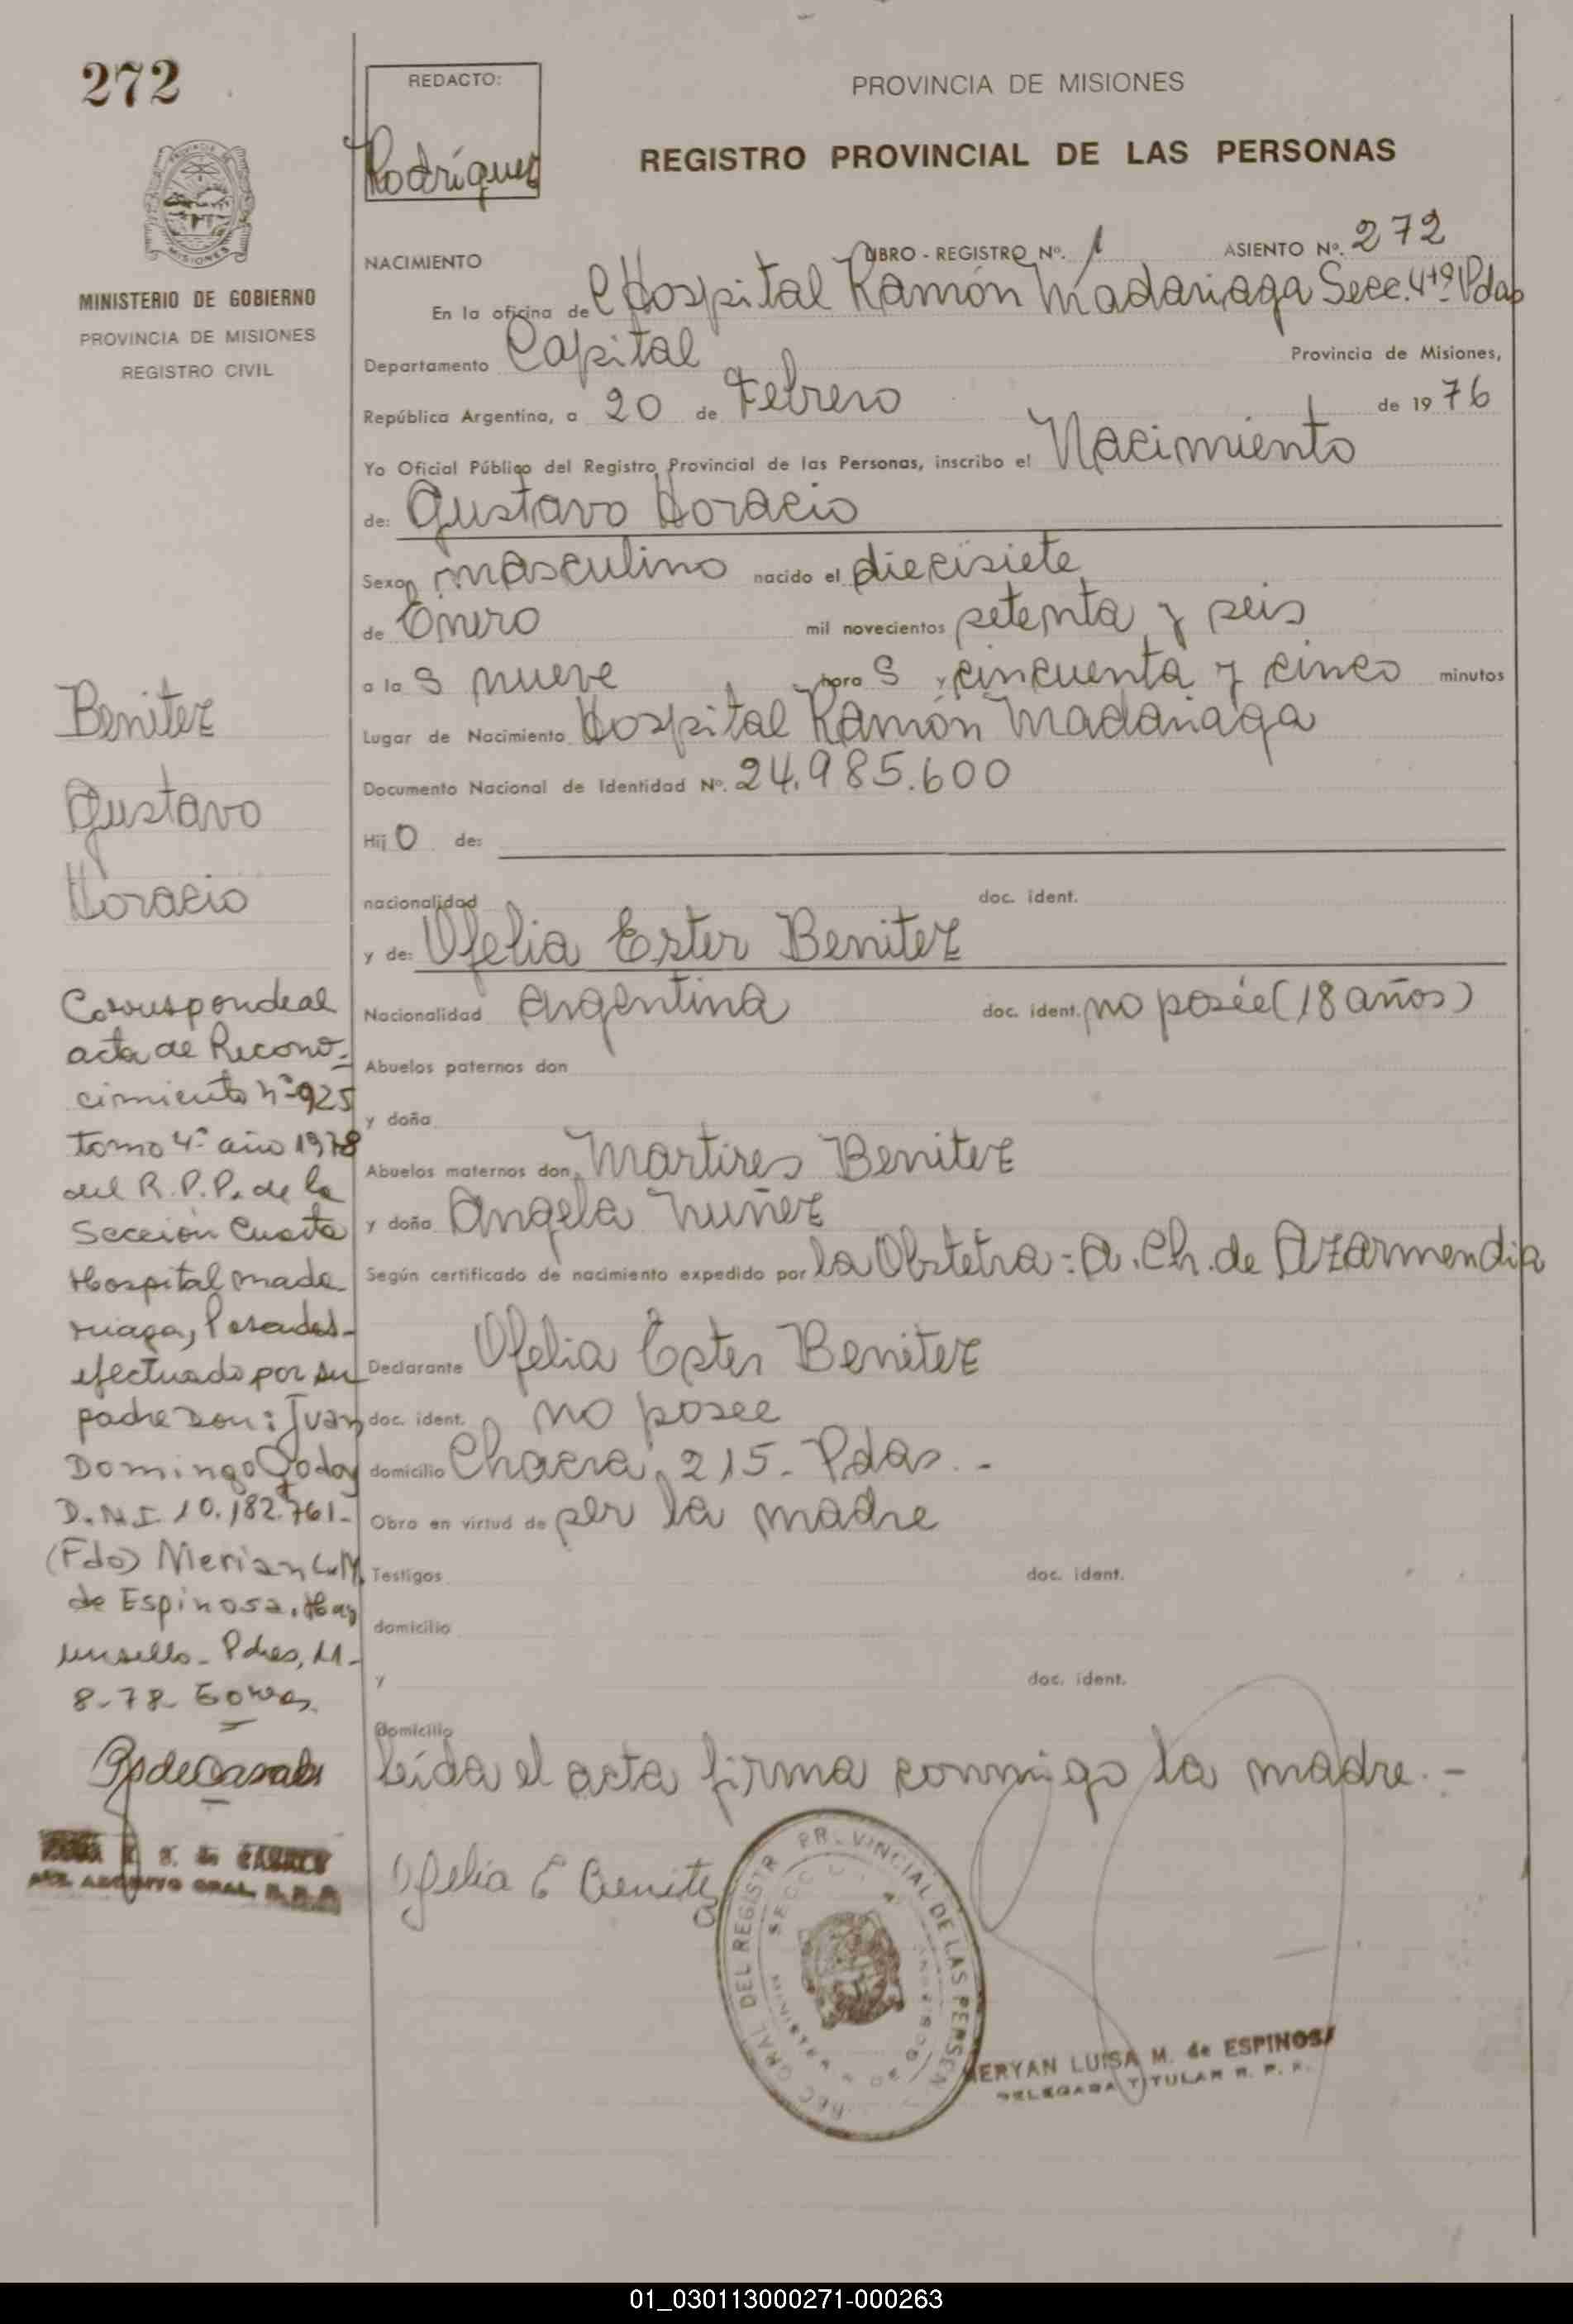 272
REDACTO:
Rodríguez
PROVINCIA DE MISIONES
REGISTRO PROVINCIAL DE LAS PERSONAS
MINISTERIO DE GOBIERNO
PROVINCIA DE MISIONES
REGISTRO CIVIL
NACIMIENTO
LIBRO - REGISTRO Nº. 1 ASIENTO Nº. 272
En la oficina de Hospital Ramón Madariaga Secc. 4ta Pdas
Departamento Capital Provincia de Misiones,
República Argentina, a 20 de Febrero de 1976
Yo Oficial Público del Registro Provincial de las Personas, inscribo el Nacimiento
de: Gustavo Horacio
Sexo masculino nacido el diecisiete
de Enero mil novecientos setenta y seis
a la s nueve hora s y cincuenta y cinco minutos
Lugar de Nacimiento Hospital Ramón Madariaga
Documento Nacional de Identidad Nº. 24.985.600
Hij o de:
nacionalidad doc. ident.
y de: Ofelia Ester Benitez
Nacionalidad argentina doc. ident. no posée (18 años)
Abuelos paternos don
y doña
Abuelos maternos don Martires Benitez
y doña Angela Nuñez
Según certificado de nacimiento expedido por la Obstetra: A. Ch. de Azarmendia
Declarante Ofelia Ester Benitez
doc. ident. no posee
domicilio Chacra 215- Pdas.-
Obra en virtud de ser la madre
Testigos doc. ident.
domicilio
y doc. ident.
Domicilio
leída el acta firma conmigo la madre.-
Ofelia E Benitez
MERYAN LUISA M. de ESPINOSA
DELEGADA TITULAR R. P. P.
Benitez
Gustavo
Horacio
Corresponde al
acta de Recono-
cimiento nº 925
tomo 4º año 1978
del R.P.P. de la
Sección Cuarta
Hospital Mada
riaga, Posadas-
efectuado por su
padre Don: Juan
Domingo Godoy
D.N.I. 10.182.761-
(Fdo) Merian L. M.
de Espinosa. Hay
un sello- Pdas, 11-
8-78-
de CASALS
01_030113000271-000263